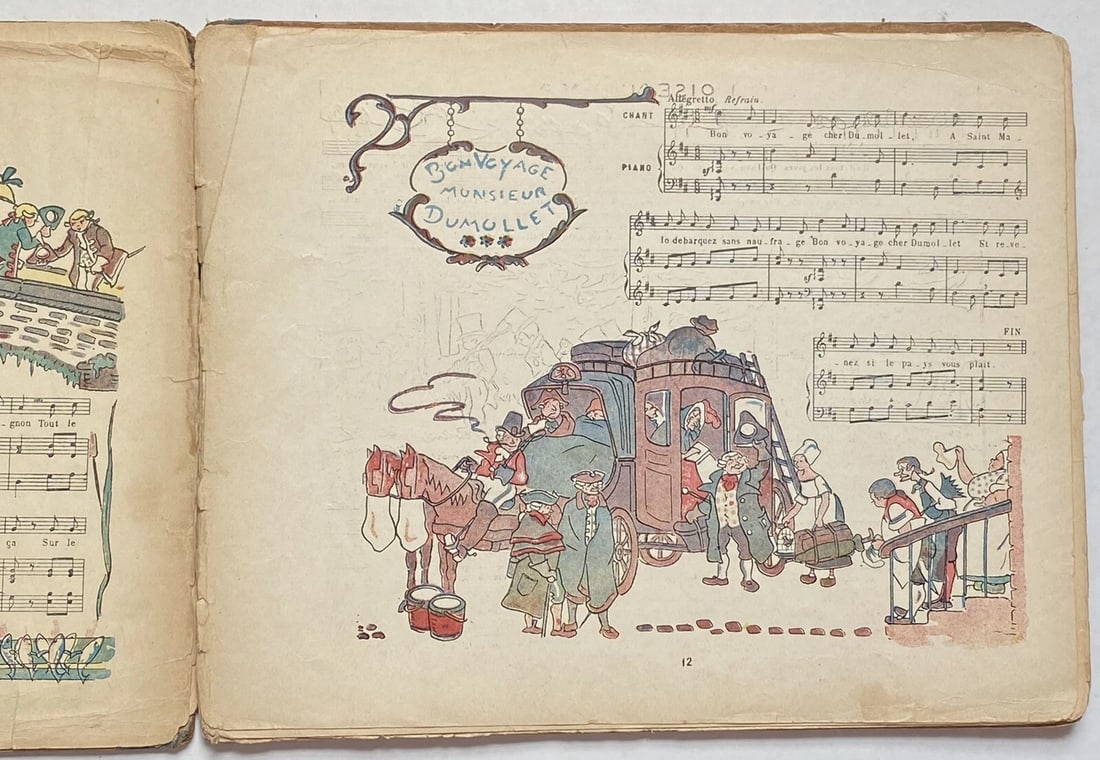 gnon Tout le
ça Sur le
BON VOYAGE
MONSIEUR
DUMOLLET
Allegretto Refrain.
CHANT
mf
Bon vo - ya - ge cher Du - mol - let, A Saint Ma -
PIANO
sf
lo debarquez sans nau - fra - ge Bon vo - ya - ge cher Dumol - let Et re - ve -
sf
FIN
nez si le pa - ys vous plait.
12